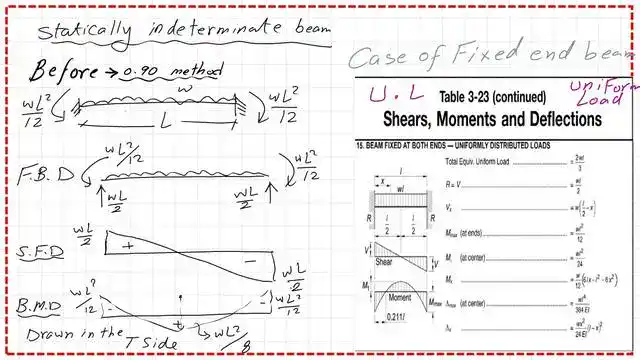 Statically indeterminate beam
Before → 0.90 method
w
wL²/12
wL²/12
L
F.B.D
wL²/12
wL²/12
wL/2
wL/2
S.F.D
wL/2
+
−
wL/2
B.M.D
wL²/12
-
-
wL²/12
+
wL²/8
Drawn in the T Side
Case of Fixed end beam
U.L
Uniform Load
Table 3-23 (continued)
Shears, Moments and Deflections
15. BEAM FIXED AT BOTH ENDS — UNIFORMLY DISTRIBUTED LOADS
Total Equiv. Uniform Load = 2wl/3
R = V = wl/2
Vx = w(l/2 − x)
Mmax (at ends) = wl²/12
M₁ (at center) = wl²/24
Mx = w/12 (6lx − l² − 6x²)
Δmax (at center) = wl⁴/384EI
Δx = wx²/24EI (l − x)²
l
x
wl
R
R
l/2
l/2
V
Shear
V
M₁
Moment
Mmax
0.211l